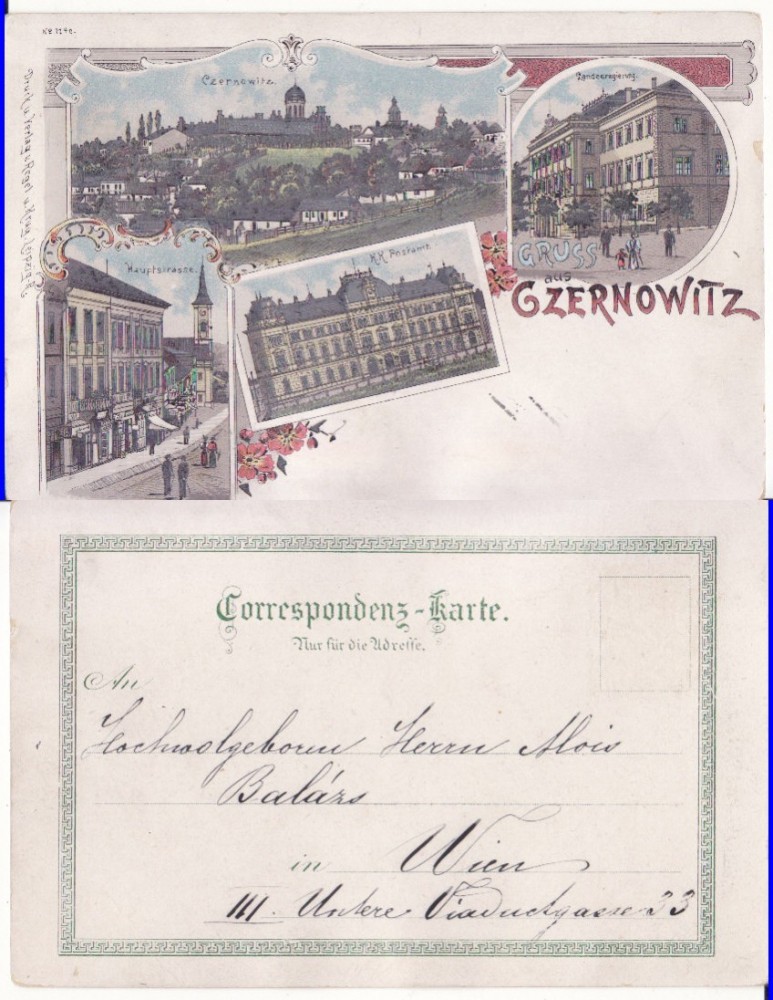 Czernowitz.
Landesregierung.
Hauptstrasse.
K.K. Postamt.
GRUSS
aus
CZERNOWITZ
Correspondenz-Karte.
Nur für die Adresse.
An
Hochwolgeboren Herrn Alois
Balázs
in Wien
III. Untere Viaductgasse 33